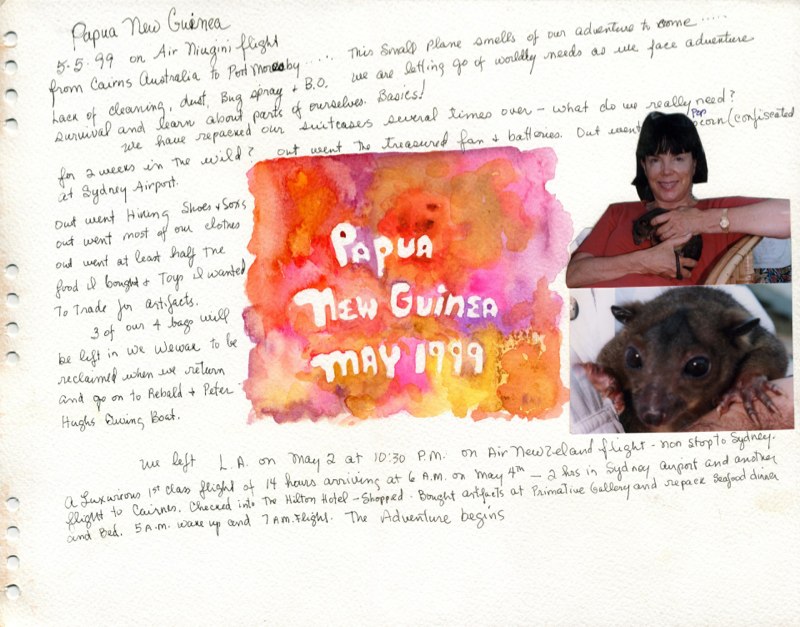 Papua New Guinea
5.5.99 on Air Niugini flight
from Cairns Australia to Port Moresby ..... This small plane smells of our adventure to come .....
Lack of cleaning, dust, Bug spray + B.O. we are letting go of worldly needs as we face adventure
survival and learn about parts of ourselves. Basics!
We have repacked our suitcases several times over - what do we really need?
for 2 weeks in the wild? out went the treasured fan + batteries. Out went Popcorn (confiscated
at Sydney Airport.
Out went Hiking Shoes + Socks
out went most of our clothes
out went at least half the
food I bought + Toys I wanted
To Trade for artifacts.
3 of our 4 bags will
be left in We Wewak to be
reclaimed when we return
and go on to Rebald + Peter
Hughs Diving Boat.
PAPUA
NEW GUINEA
MAY 1999
We left L.A. on May 2 at 10:30 P.M. on Air New Zeland flight - non stop to Sydney.
A Luxurious 1st class flight of 14 hours arriving at 6 A.M. on May 4th — 2 hrs in Sydney airport and another
flight to Cairnes. Checked into The Hilton Hotel - Shopped. Bought artifacts at Primative Gallery and repack Seafood dinner
and Bed. 5 A.M. wake up and 7 A.M. Flight. The Adventure begins